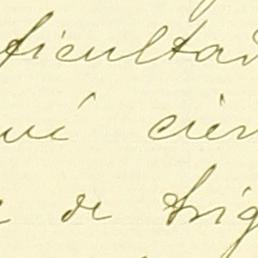 ficultad
uí cien
e de trig